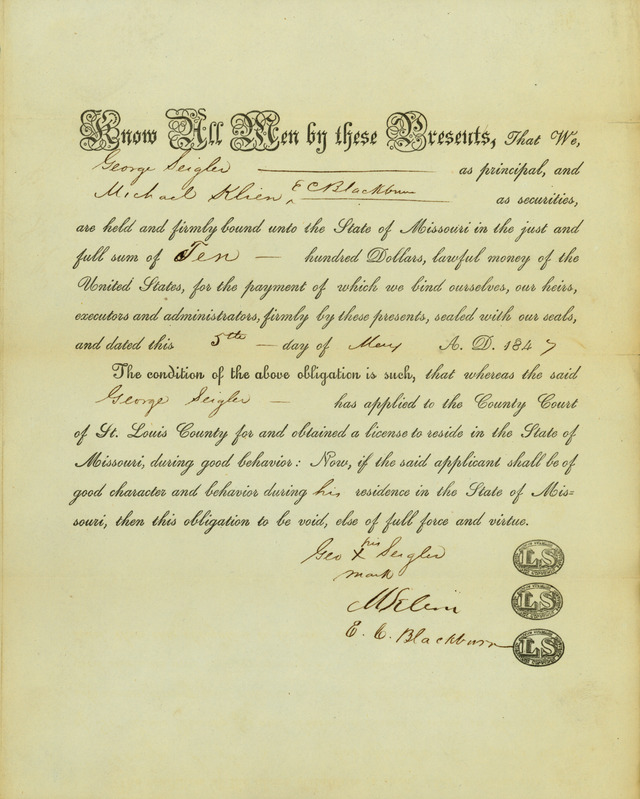 Know All Men by these Presents, That We,
George Seigler as principal, and
Michael Klien, E C Blackburn as securities,
are held and firmly bound unto the State of Missouri in the just and
full sum of Ten — hundred Dollars, lawful money of the
United States, for the payment of which we bind ourselves, our heirs,
executors and administrators, firmly by these presents, sealed with our seals,
and dated this 5th — day of May A. D. 1847
The condition of the above obligation is such, that whereas the said
George Seigler — has applied to the County Court
of St. Louis County for and obtained a license to reside in the State of
Missouri, during good behavior: Now, if the said applicant shall be of
good character and behavior during his residence in the State of Mis=
souri, then this obligation to be void, else of full force and virtue.
his
Geo X Seigler
mark
LS
M Klein
LS
E. C. Blackburn
LS